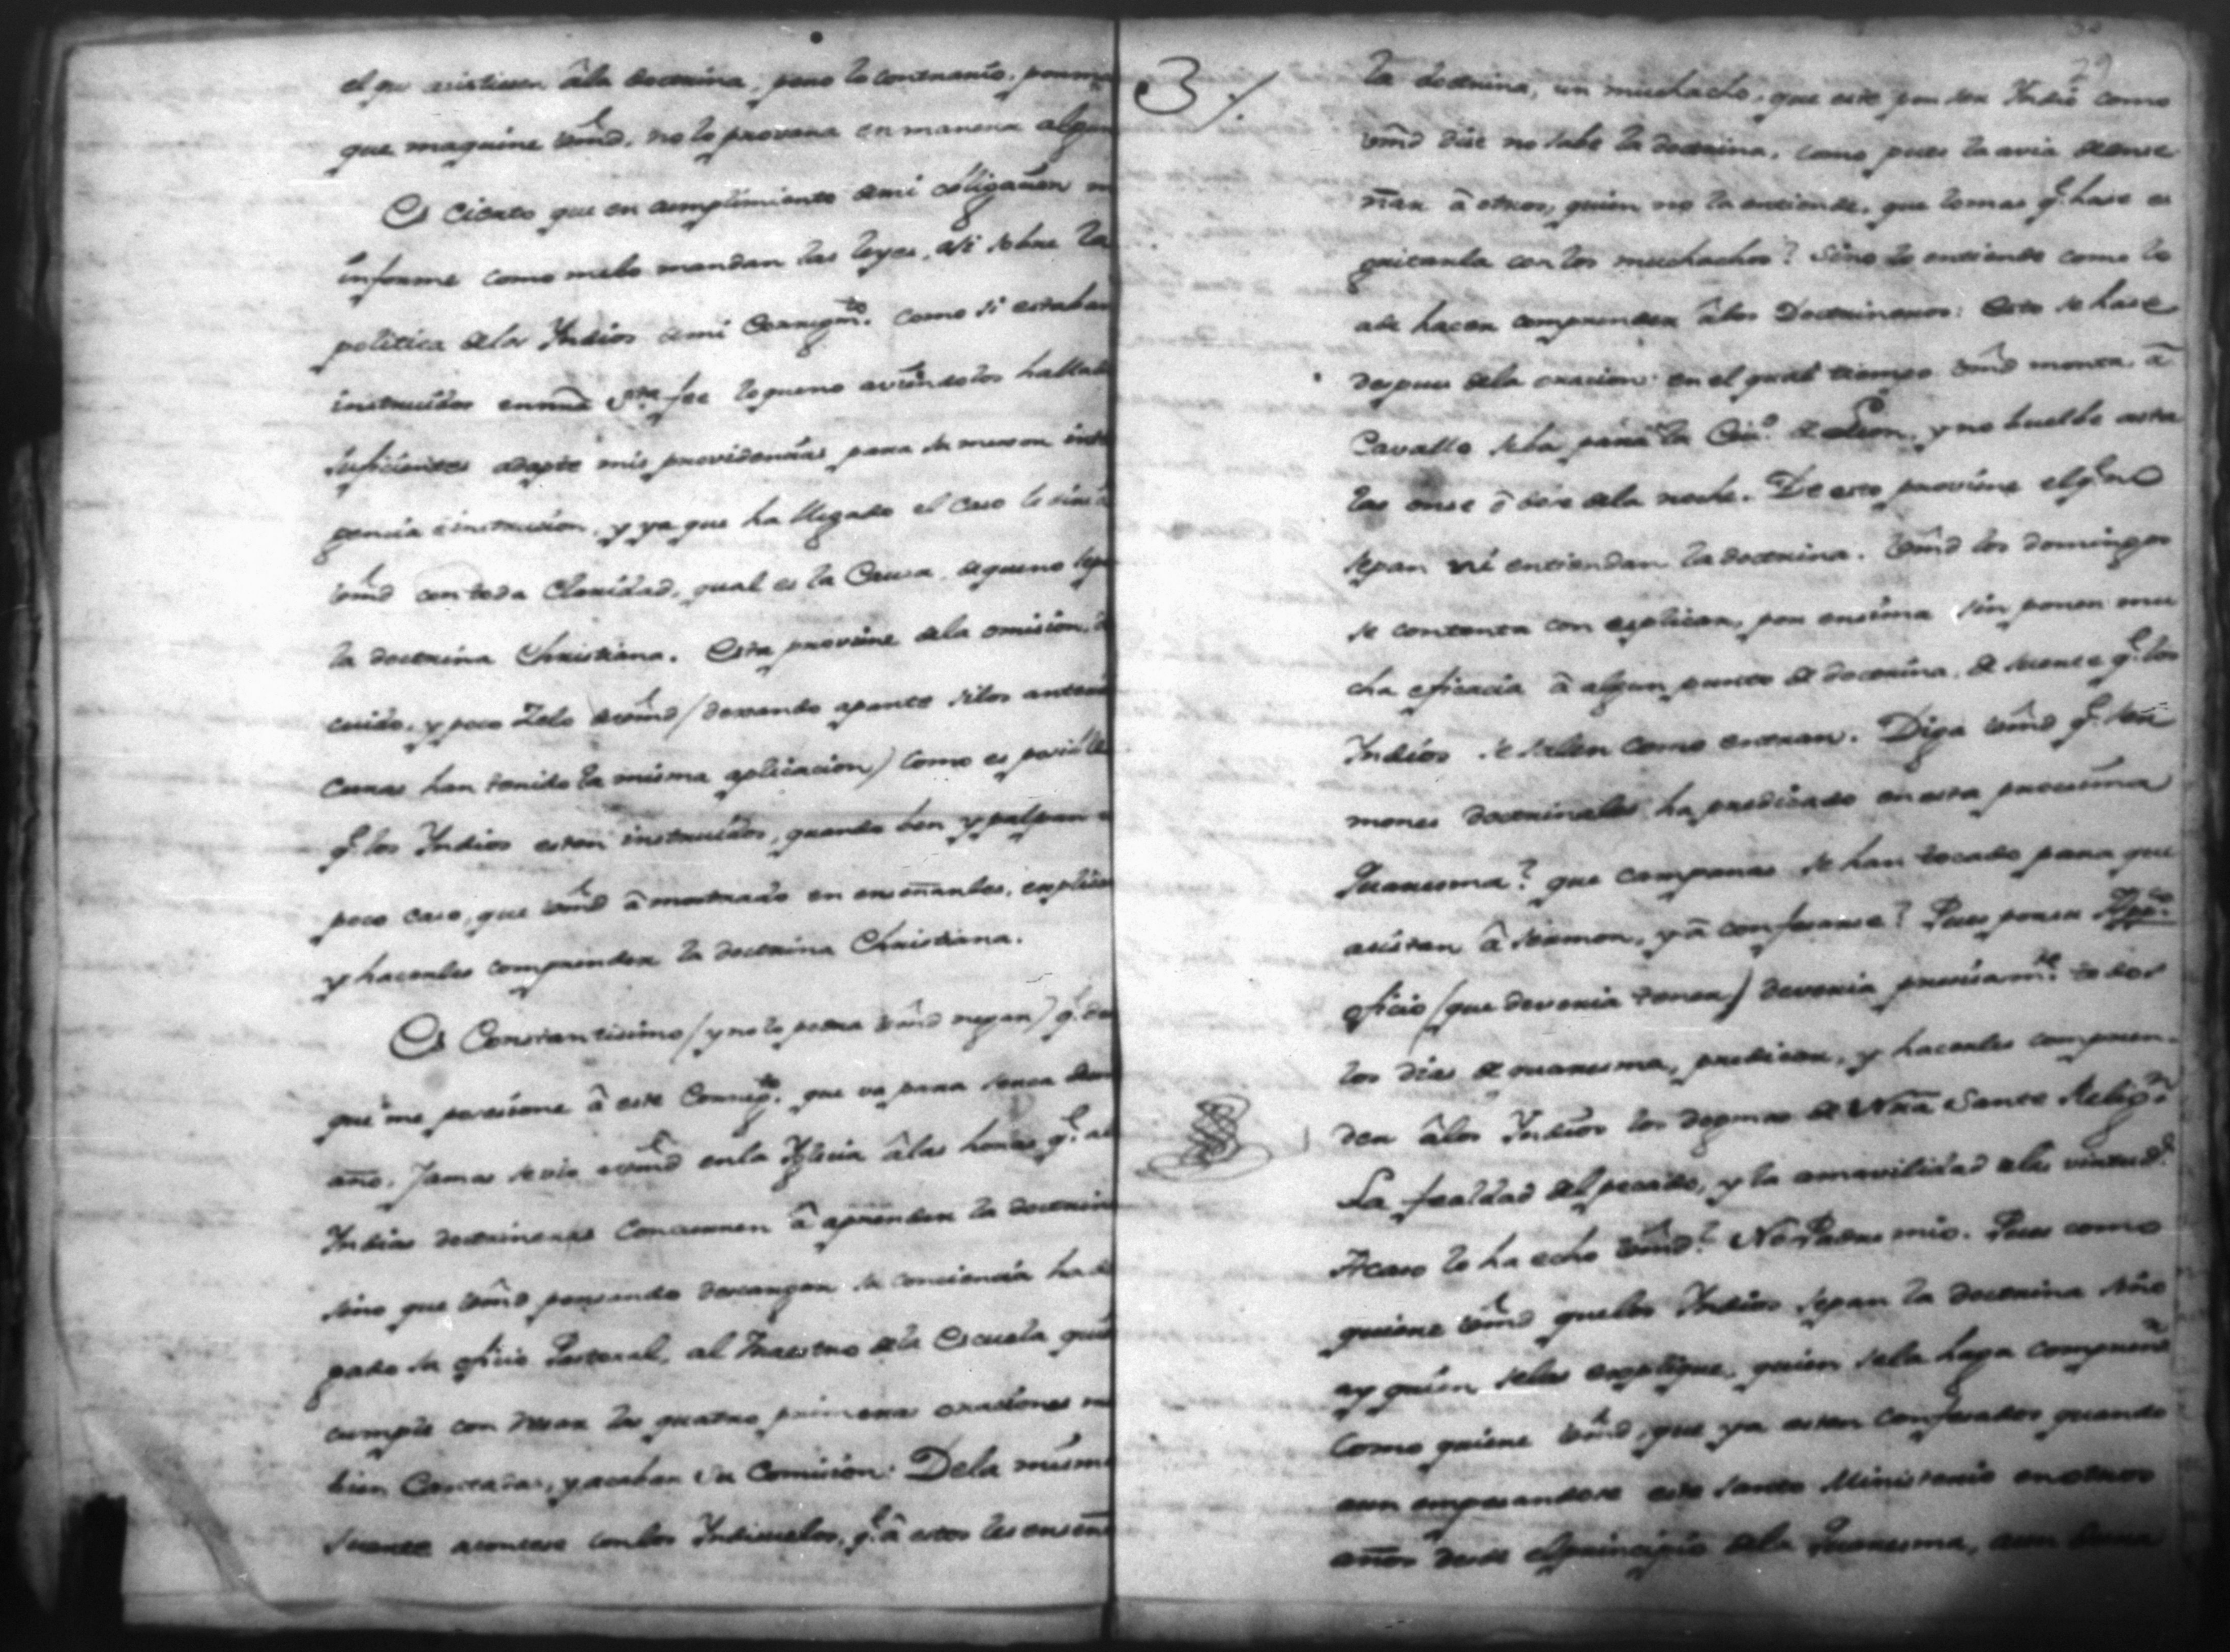 el qe. asistiesen âla doctrina, pero lo contrario, por mas
que maquine Vmd. no lo provara en manera algun
Es cierto que en cumplimiento demi obligacion
informe como melo mandan las leyes, asi sobre la
politica delos Yndios demi Corregmto. como si estaban
instruidos ennra Sta. fee loqueno aviendolos hallado
suficientes adapte mis providencias para su mexor
gencia è instruccion, y ya que ha llegado el caso le dire à
Vmd con toda Claridad, qual es la Causa, dequeno sepan
la doctrina Christiana. Esta proviene dela omision,
cuido, y poco Zelo deVmd (dexando aparte silos anteri
Curas han tenido la misma aplicacion) como es posible
qe. los Yndios esten instruidos, quando ben y palpan
poco caso, que Vmd â mostrado en enseñarles, explicar
y hacerles comprender la doctrina Christiana.
Es Constantisimo (y no lo podra Vmd negar) qe. des
que me posesione â este Corregto. que va para serca de un
año, Jamas sevio aVmd enla Yglesia âlas horas qe. a
Yndias doctrineras Concurren â aprender la doctrina
sino que Vmd pensando descargar su conciencia ha
pado su oficio Pastoral, al Maestro dela Escuela, que
cumple con resar las quatro primeras oraciones
bien Cantadas, y acaban su Comision. Dela misma
suerte acontese conlos Yndisuelos, qe. â estos les enseñ
3./.
29
la doctrina, un muchacho, que este por ser Yndio como
Vmd dise no sabe la doctrina, como pues la avia deense
ñar â otros, quien no la entiende, que lomas qe. hase es
gritarla con los muchachos? Sino lo entiende como lo
ade hacer comprender âlos Doctrineros: Esto se hase
despues dela oracion: en el qual tiempo Vmd monta â
Cavallo seba para la Ciud. de Leon, y no buelbe asta
las onse ô dose dela noche. De esto proviene elqe. no
sepan ni entiendan la doctrina. Vmd los domingos
se contenta con explicar, por ensima sin poner mu
cha eficacia â algun punto de doctrina, de suerte qe. los
Yndios se salen como entran. Diga Vmd qe. ser
mones doctrinales ha predicado en esta procsima
Quaresma? que campanas se han tocado para que
asistan â sermon, y â confesarse? Pues por su Appco.
oficio (que deveria tener) deveria precisamte. todos
los dias de quaresma, predicar, y hacerles compren-
der âlos Yndios los dogmas de Nra Santa Religon.
La fealdad del pecado, y la amavilidad delas virtuds.
Acaso lo ha echo Vmd? No Padre mio. Pues como
quiere Vmd quelos Yndios sepan la doctrina sino
ay quien selas explique, quien sela haga comprender
Como quiere Vmd, que ya esten confesados quando
aun empesandose este santo Ministerio en otros
años desde elprincipio dela Quaresma, aun